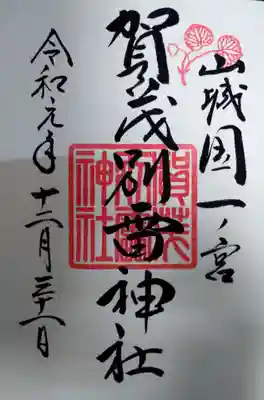 山城国一ノ宮
賀茂別雷神社
令和元年十二月三十一日
賀茂
神社